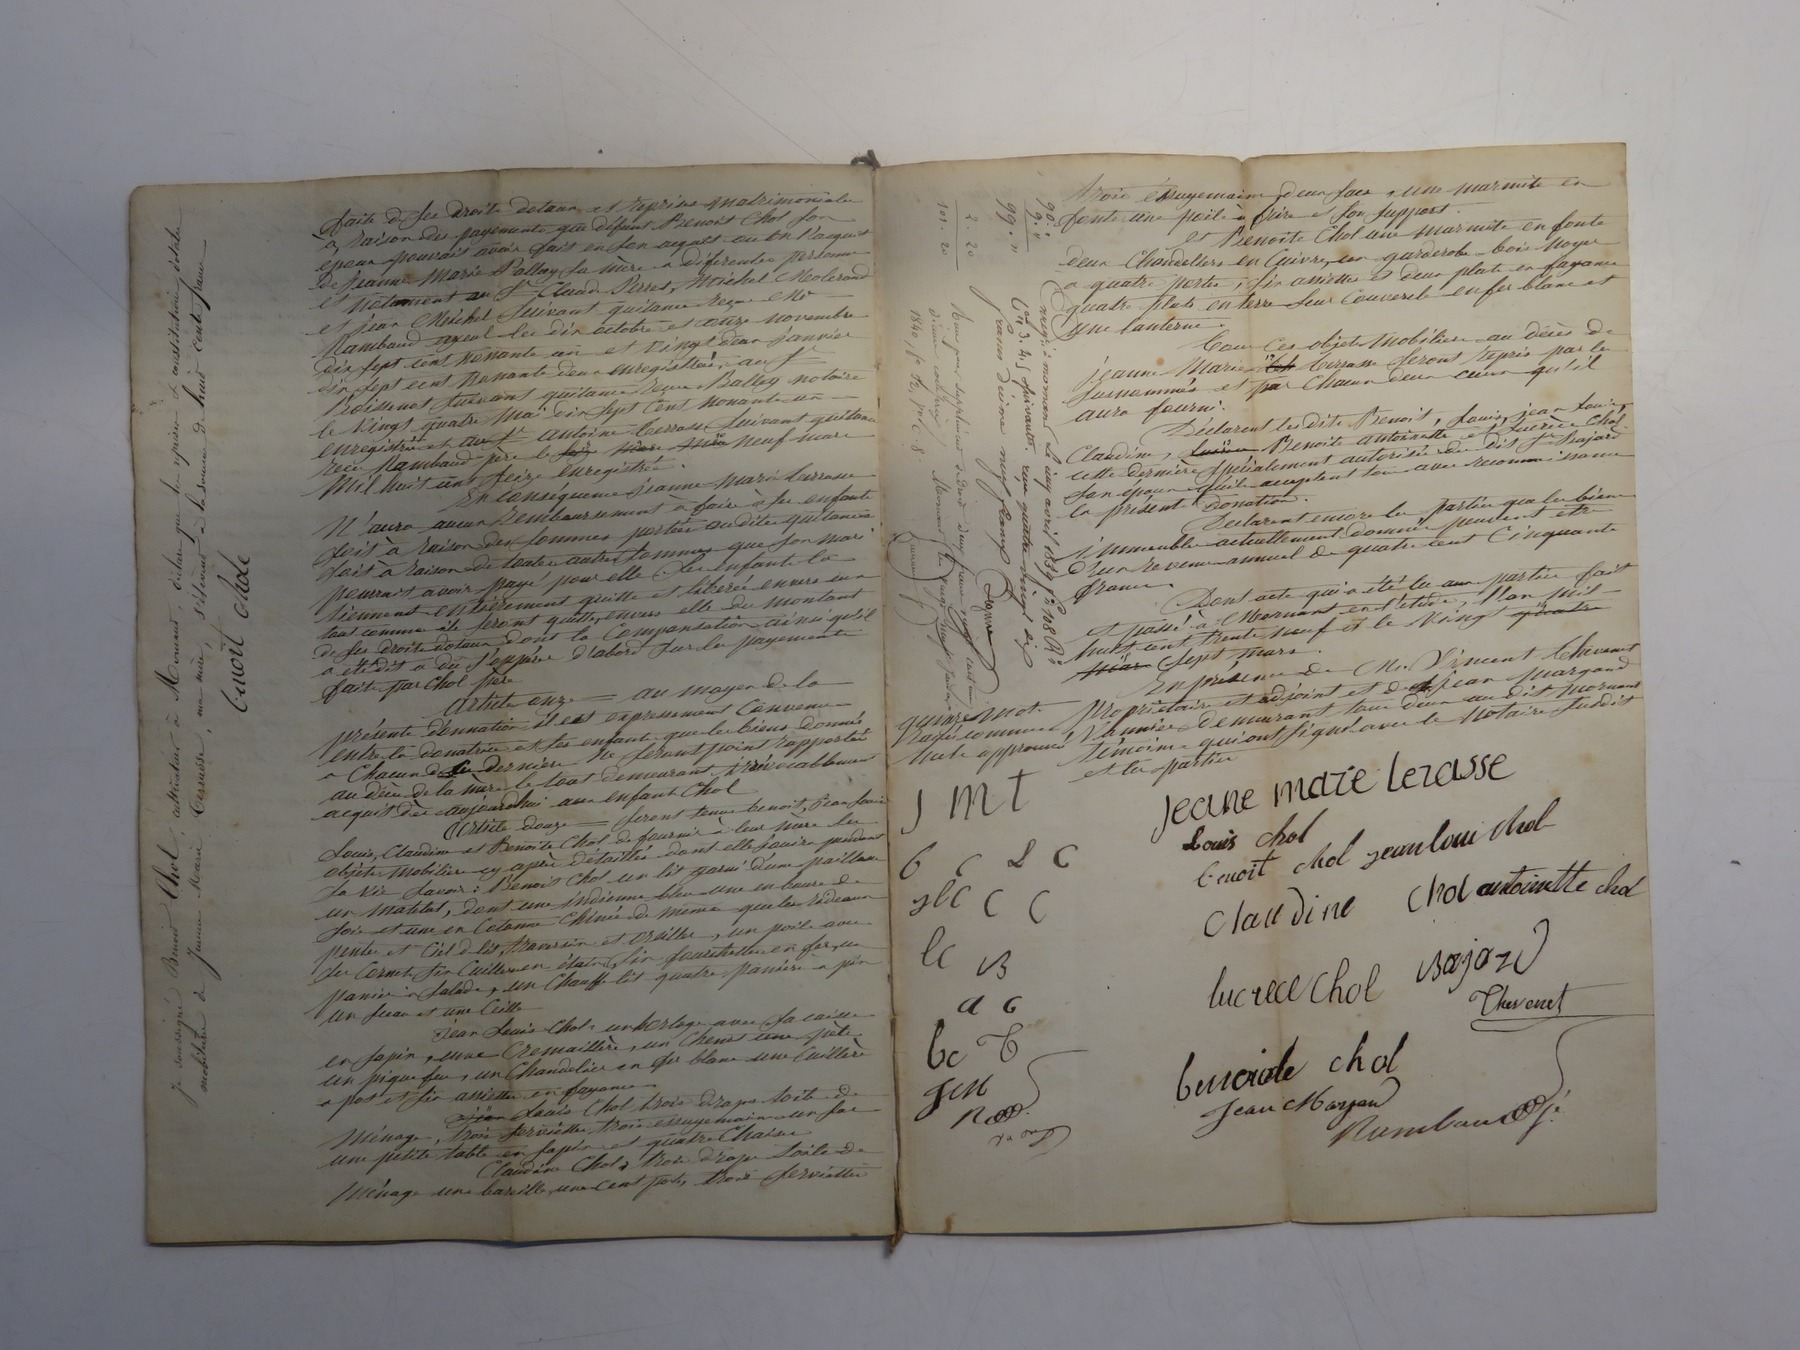 faite de ses droits dotaux et reprises matrimoniales
à raison des payements que défunt Benoit Chol son
époux pouvait avoir fait en son acquit ou en l'acquit
de Jeanne Marie Balley sa mère à différentes personnes
et notamment au Sr Claude Perret, Michel
et jean Michel suivant quitance reçue Me
Rambaud ayeul les dix octobre et onze novembre
dix sept cent nonante un et vingt deux janvier
dix sept cent nonante deux enregistrées, au Sr
suivant quitance reçue Balley notaire
le vingt quatre mai dix sept cent nonante un
enregistrée et au Sr antoine Terrasse suivant quitance
reçu Rambaud père le neuf mars
mil huit cent seize enregistrée.
En conséquence jeanne marie terrasse
n'aura aucun remboursement à faire à ses enfants
soit à raison des sommes portées auxdites quitances
soit à raison de toutes autres sommes que son mari
pourrait avoir payé pour elle. Ses enfants la
tiennent entièrement quitte et libérée envers eux
tout comme ils seront quittes envers elle du montant
de ses droits dotaux dont la compensation ainsi qu'il
a été dit a du s'opérer d'abord sur les payements
faits par Chol père
Article onze = au moyen de la
présente donnation il est expressément convenu
entre la donatrice et ses enfants que les biens donnés
à chacun de ces derniers ne seront point rapportés
au décès de la mère le tout demeurant irrévocablement
acquit dès aujourd'hui aux enfants Chol
Article douze = seront tenus benoit, jean louis
Louis, Claudine et Benoite Chol de fournir à leur mère les
objets mobiliers cy après détaillés dont elle jouira pendant
sa vie savoir : Benoit Chol un lit garni d'une paillasse
un matelat, dont une indienne bleu une en bourre de
soie et une en cotonne chinée de même que les rideaux
pentes et ciel de lit, traversin et oreiller, un poile avec
ses cornets, six cuillers en étain, six fourchettes en fer, un
panier à salade, un chauffe lit quatre paniers à pain
un seau et une seille
Jean Louis Chol, un horloge avec sa caisse
en sapin, une cremaillère, un chenet une pele
un pique feu, un chandelier en fer blanc une cuillère
à pot et six assiettes en fayance
Louis Chol trois draps toile de
ménage, trois serviettes trois essuyemains un sac
une petite table en sapin et quatre chaises
Claudine Chol, trois draps toile de
ménage une barille, une cent pots, trois serviettes
je soussigné Benoit Chol, cultivateur à Mornant, déclare que les reprises et constitutions dotales
mobilières de Jeanne Marie Terrasse, ma mère, s'élèvent à la somme de huit cents francs
benoit chol
trois essuyemains deux sacs, une marmite en
fonte une poile à frire et son support.
et Benoite Chol une marmite en fonte
deux chandeliers en cuivre, un garderobe bois noyer
à quatre portes, six assiettes et deux plats en fayance
quatre plats en terre leur couvercle en fer blanc et
une lanterne.
Tous ces objets mobiliers au décès de
jeanne Marie terrasse seront repris par les
susnommés et par chacun deux ceux qu'il
aura fourni.
Déclarent lesdits Benoit, Louis, jean Louis,
Claudine, Benoite antoinette et Lucrèce Chol
cette dernière spécialement autorisée du dit Sr Bajard
son époux qu'ils acceptent tous avec reconnaissance
la présente donation.
Déclarent encore les parties que les biens
immeubles actuellement donnés peuvent être
d'un revenu annuel de quatre cent cinquante
francs.
Dont acte qui a été lu aux parties fait
et passé à Mornant en l'étude l'an mil
huit cent trente neuf et le vingt
sept mars.
En présence de Mrs Vincent Thevenet
propriétaire et adjoint et de jean Margand
vannier demeurant tous deux au dit Mornant
témoins qui ont signé avec le notaire susdit
et les parties
quinze mots
rayés comme
nuls approuvés
90. "
9. "
99. "
2. 20
101. 20
Enregistré à mornant le cinq avril 1839 fo 108 Ro
Cases 3. 4. 5. et suivantes. reçu quatre vingt dix
francs dixième neuf francs
Reçu pour supplément de droit deux francs vingt centimes
j m t
b c L C
jlc C C
lc B
a c
bc T
jm
Jeane marie terasse
Louis chol
benoit chol jean loui chol
Claudine Chol antoinette chol
lucrece Chol Bajard
Thevenet
benoide chol
Jean Margand
Rambaud